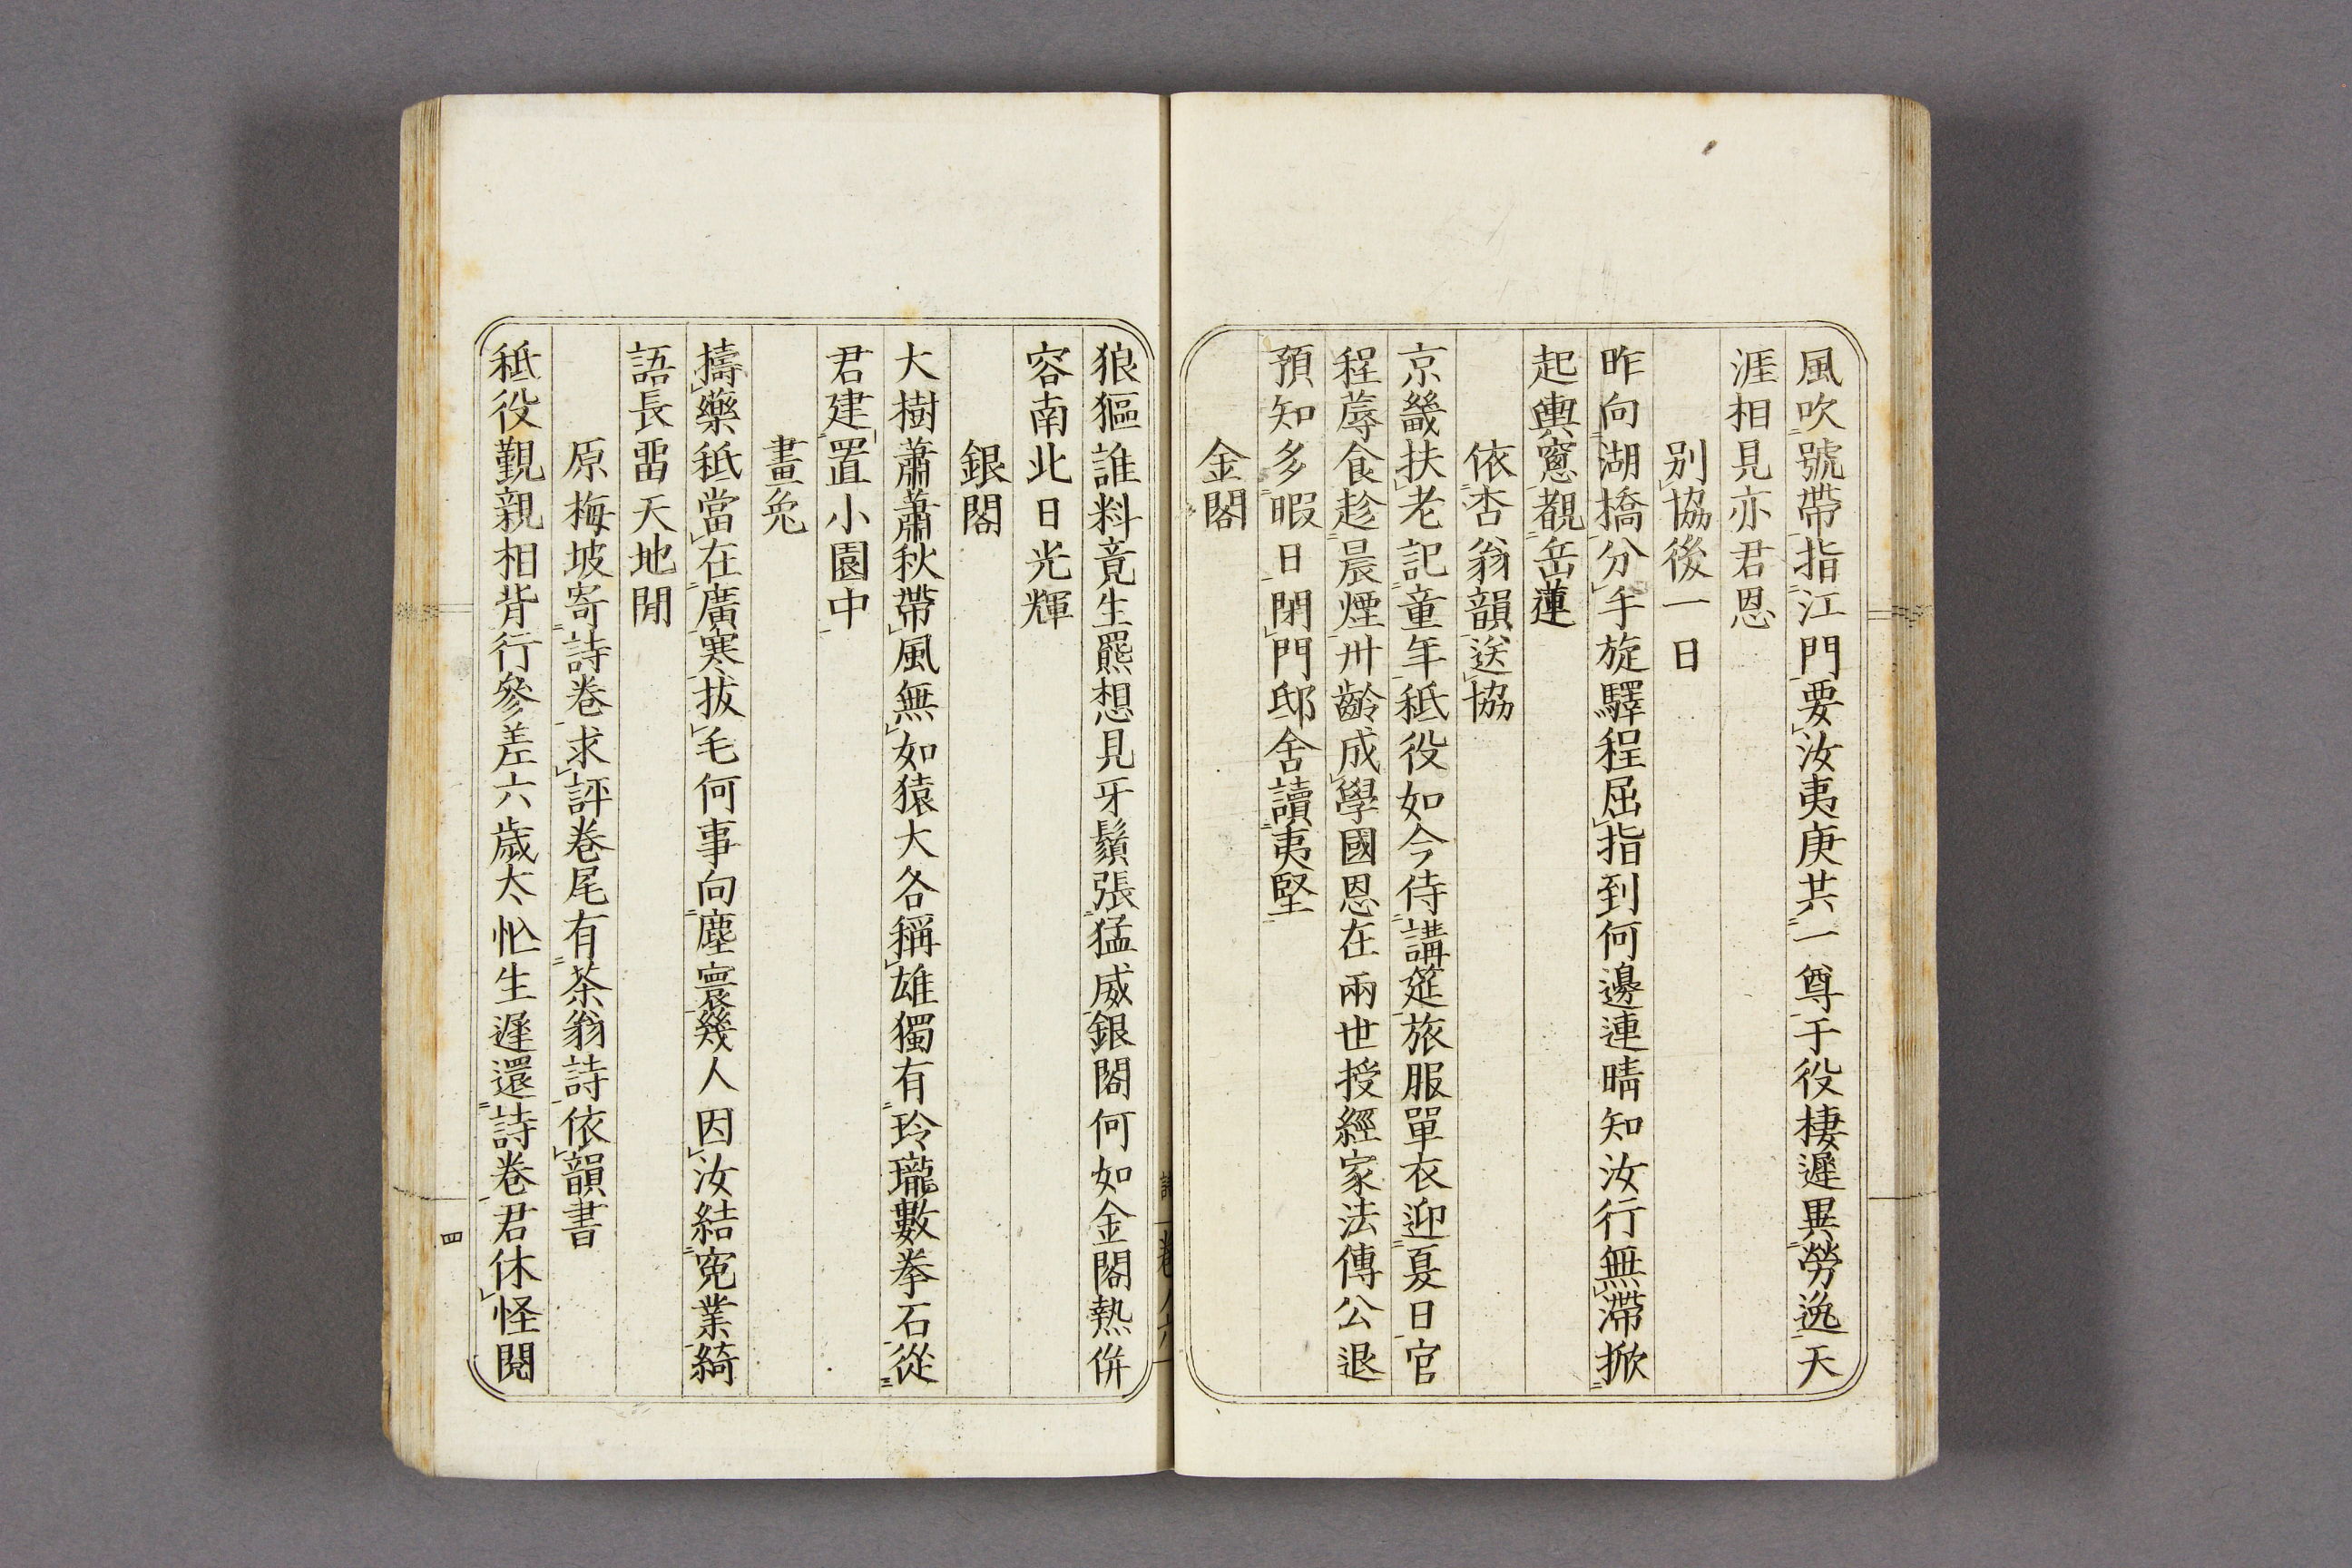 風吹號帶指江門要汝夷庚共一尊于役棲遲異勞逸天
涯相見亦君恩
别協後一日
昨向湖橋分手旋驛程屈指到何邊連晴知汝行無滯掀
起輿窻覩岳蓮
依杏翁韻送協
京畿扶老記童年秪役如今侍講筵旅服單衣迎夏日官
程蓐食趁晨煙丱齡成學國恩在兩世授經家法傳公退
預知多暇日閉門邸舍讀夷堅
金閣
狼貙誰料竟生羆想見牙鬚張猛威銀閣何如金閣熱併
容南北日光輝
銀閣
大樹蕭蕭秋帶風無如猿大各稱雄獨有玲瓏數拳石從
君建置小園中
畫兔
擣藥秪當在廣寒拔毛何事向塵寰幾人因汝結寃業綺
語長畱天地閒
原梅坡寄詩卷求評卷尾有茶翁詩依韻書
秪役覲親相背行參差六歳太忙生遲還詩卷君休怪閲
四